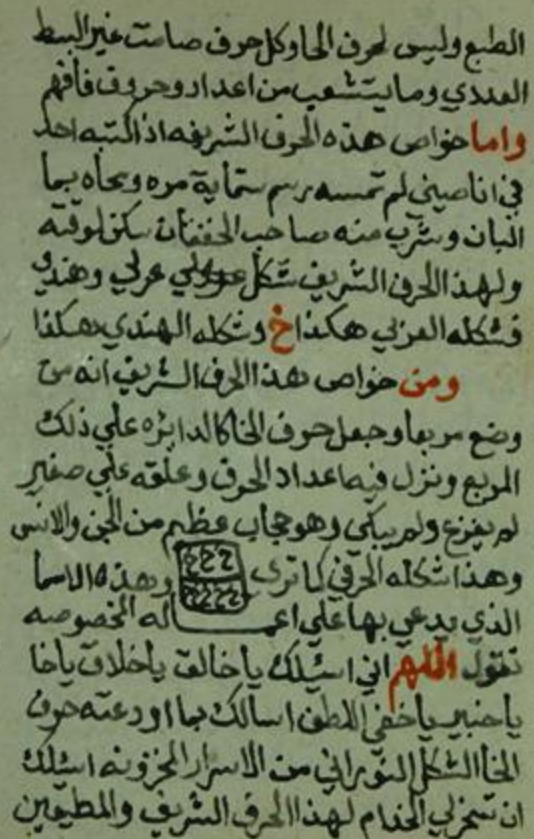 الطبع وليس لحرف الخا وكل حرف صامت غير البسط
العددي وما يتشعب من اعداد وحروف فافهم
واما خواص هذه الحرف الشريفه اذا كتبه احد
في انا صيني لم تمسه رسم ستماية مره ومحاه بما
البان وشرب منه صاحب الخفقان سكن لوقته
ولهذا الحرف الشريف شكل عربي وهندي
فشكله العربي هكذا خ وشكله الهندي هكذا
ومن خواص هذا الحرف الشريف انه من
وضع مربعا وجعل حرف الخا كالدايره علي ذلك
المربع ونزل فيه اعداد الحرف وعلقه علي صغير
لم يفزع ولم يبكي وهو حجاب عظيم من الجن والانس
وهذا شكله الحرفي كما تري وهذه الاسما
الذي يدعي بها علي اعماله المخصوصه
تقول اللهم اني اسئلك يا خالق يا خلاق يا خا
يا خبير يا خفي اللطف اسالك بما اودعته حرف
الخا الشكل النوراني من الاسرار المخزونه اسئلك
ان تسخر لي الخدام لهذا الحرف الشريف والمطيعين